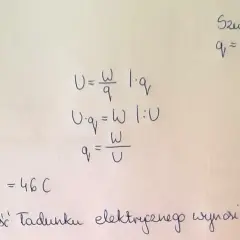 Szu
q =
U = W/q |·q
U·q = W |:U
q = W/U
= 46 C
ść ładunku elektrycznego wynosi